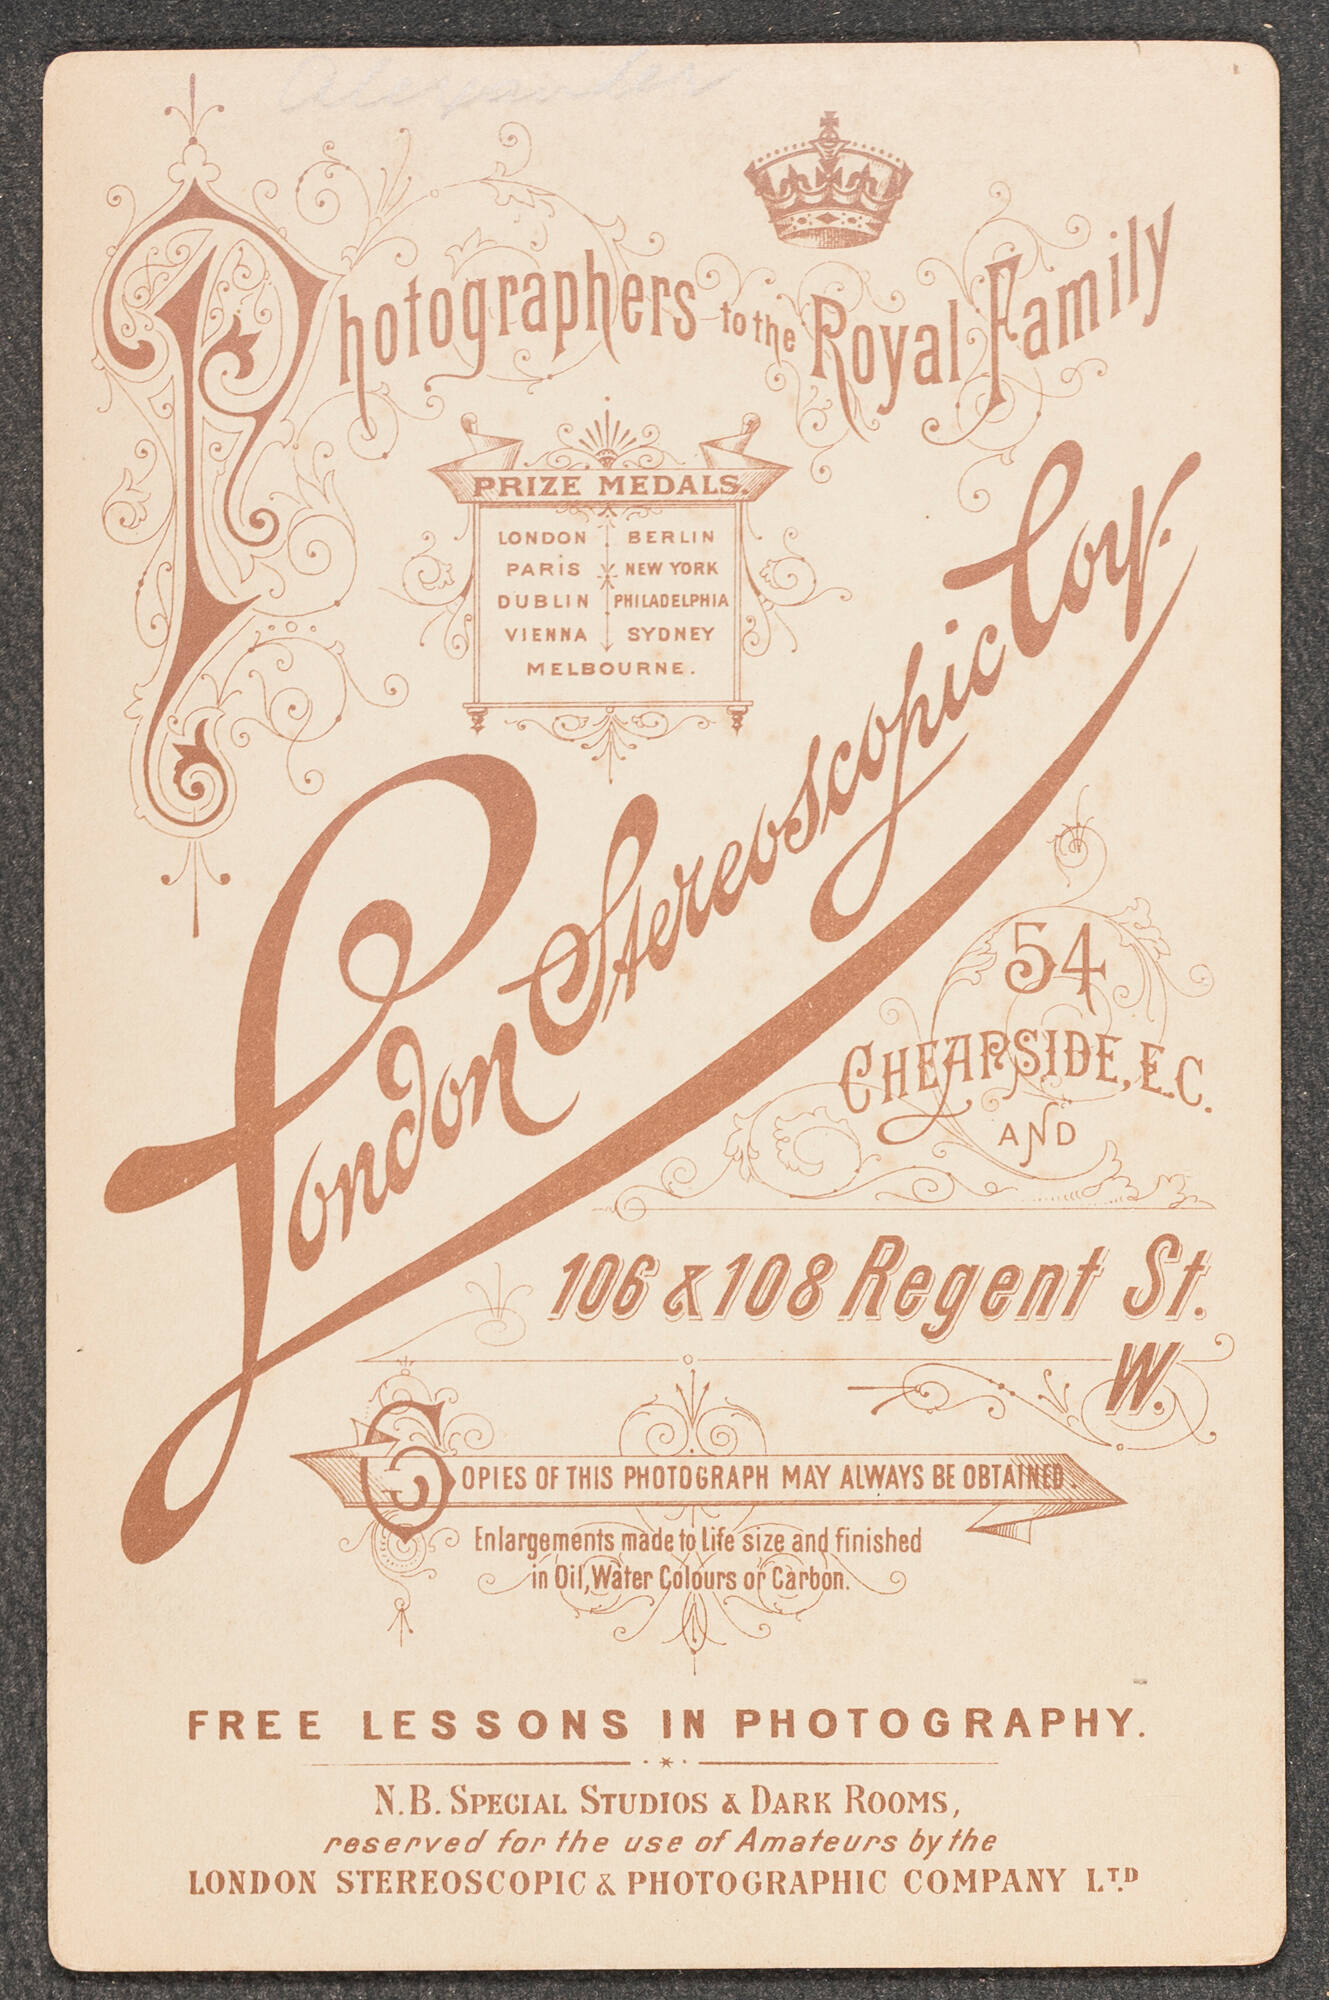 Alexander
Photographers to the Royal Family
PRIZE MEDALS.
LONDON BERLIN
PARIS NEW YORK
DUBLIN PHILADELPHIA
VIENNA SYDNEY
MELBOURNE.
London Stereoscopic Coy.
54
CHEAPSIDE, E.C.
AND
106 & 108 Regent St.
W.
COPIES OF THIS PHOTOGRAPH MAY ALWAYS BE OBTAINED.
Enlargements made to Life size and finished
in Oil, Water Colours or Carbon.
FREE LESSONS IN PHOTOGRAPHY.
N.B. SPECIAL STUDIOS & DARK ROOMS,
reserved for the use of Amateurs by the
LONDON STEREOSCOPIC & PHOTOGRAPHIC COMPANY LTD